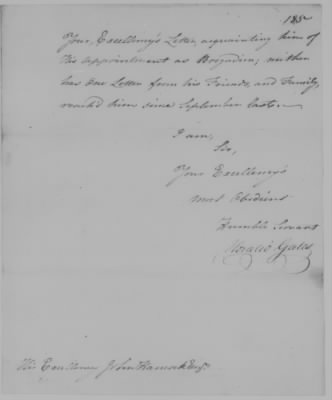 185
Your Excellency's Letter, acquainting him of
his appointment as Brigadier; neither
has One Letter from his Friends, and Family,
reach'd him since September last.
I am,
Sir,
Your Excellency's
most Obedient
Humble Servant
Horatio Gates
His Excellency John Hancock Esqr.